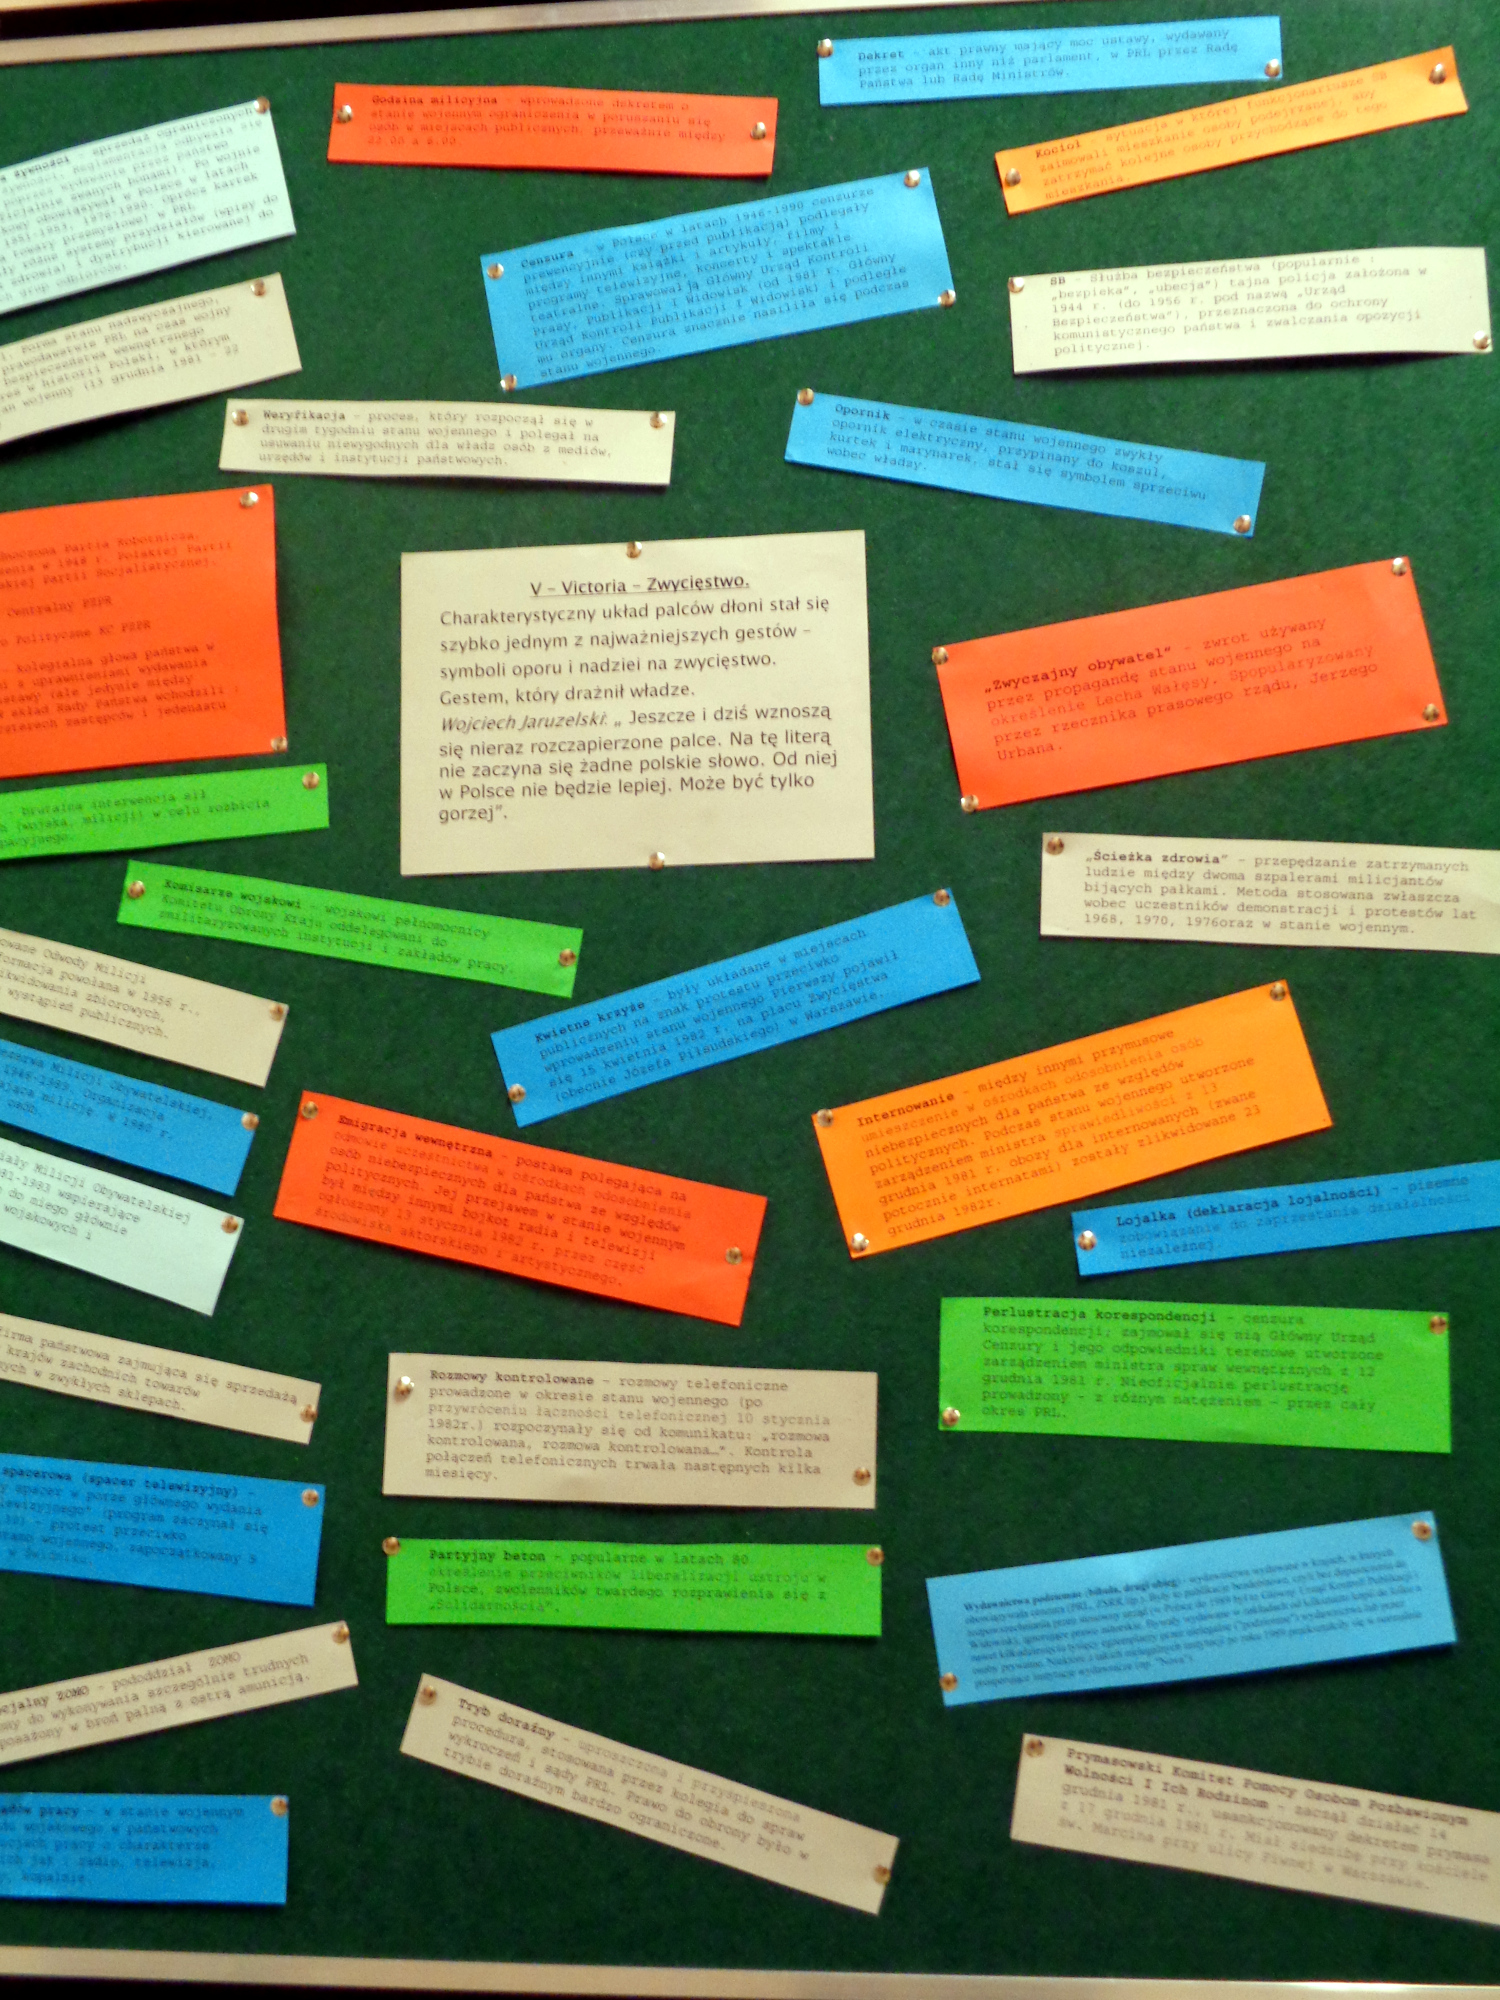 Dekret - akt prawny mający moc ustawy, wydawany
przez organ inny niż parlament, w PRL przez Radę
Państwa lub Radę Ministrów.
Godzina milicyjna - wprowadzone dekretem o
stanie wojennym ograniczenia w poruszaniu się
osób w miejscach publicznych, przeważnie między
22.00 a 6.00.
Kocioł - sytuacja w której funkcjonariusze SB
zajmowali mieszkanie osoby podejrzanej, aby
zatrzymać kolejne osoby przychodzące do tego
mieszkania.
żywności - sprzedaż ograniczonych
Reglamentacja odbywała się
poprzez wydawanie przez państwo
zwanych bonami). Po wojnie
obowiązywał w Polsce w latach
1951-1953, 1976-1990. Oprócz kartek
towary przemysłowe) w PRL
różne systemy przydziałów (wpisy do
zdrowia) i dystrybucji kierowanej do
grup odbiorców.
Cenzura - w Polsce w latach 1946-1990 cenzurze
prewencyjnie (czy przed publikacją) podlegały
między innymi książki i artykuły, filmy i
programy telewizyjne, koncerty i spektakle
teatralne. Sprawował ją Główny Urząd Kontroli
Prasy, Publikacji i Widowisk (od 1981 r. Główny
Urząd Kontroli Publikacji i Widowisk) i podległe
mu organy. Cenzura znacznie nasiliła się podczas
stanu wojennego.
SB - Służba bezpieczeństwa (popularnie :
„bezpieka", „ubecja") tajna policja założona w
1944 r. (do 1956 r. pod nazwą „Urząd
Bezpieczeństwa"), przeznaczona do ochrony
komunistycznego państwa i zwalczania opozycji
politycznej.
forma stanu nadzwyczajnego,
prawodawstwie PRL na czas wojny
bezpieczeństwa wewnętrznego
w historii Polski, w którym
wojenny (13 grudnia 1981 - 22
Weryfikacja - proces, który rozpoczął się w
drugim tygodniu stanu wojennego i polegał na
usuwaniu niewygodnych dla władz osób z mediów,
urzędów i instytucji państwowych.
Opornik - w czasie stanu wojennego zwykły
opornik elektryczny, przypinany do koszul,
kurtek i marynarek, stał się symbolem sprzeciwu
wobec władzy.
Partia Robotnicza,
w 1948 r. Polskiej Partii
Partii Socjalistycznej.
Centralny PZPR
Polityczne KC PZPR
- kolegialna głowa państwa w
z uprawnieniami wydawania
(ale jedynie między
skład Rady Państwa wchodzili :
czterech zastępców i jedenastu
V – Victoria – Zwycięstwo.
Charakterystyczny układ palców dłoni stał się
szybko jednym z najważniejszych gestów –
symboli oporu i nadziei na zwycięstwo.
Gestem, który drażnił władze.
Wojciech Jaruzelski: „ Jeszcze i dziś wznoszą
się nieraz rozczapierzone palce. Na tę literą
nie zaczyna się żadne polskie słowo. Od niej
w Polsce nie będzie lepiej. Może być tylko
gorzej".
„Zwyczajny obywatel" - zwrot używany
przez propagandę stanu wojennego na
określenie Lecha Wałęsy. Spopularyzowany
przez rzecznika prasowego rządu, Jerzego
Urbana.
- brutalna interwencja sił
(wojska, milicji) w celu rozbicia
„Ścieżka zdrowia" - przepędzanie zatrzymanych
ludzie między dwoma szpalerami milicjantów
bijących pałkami. Metoda stosowana zwłaszcza
wobec uczestników demonstracji i protestów lat
1968, 1970, 1976oraz w stanie wojennym.
Komisarze wojskowi - wojskowi pełnomocnicy
Komitetu Obrony Kraju oddelegowani do
zmilitaryzowanych instytucji i zakładów pracy.
Odwody Milicji
formacja powołana w 1956 r.,
likwidowania zbiorowych,
wystąpień publicznych.
Kwietne krzyże - były układane w miejscach
publicznych na znak protestu przeciwko
wprowadzeniu stanu wojennego Pierwszy pojawił
się 15 kwietnia 1982 r. na placu Zwycięstwa
(obecnie Józefa Piłsudskiego) w Warszawie.
Rezerwa Milicji Obywatelskiej,
1946-1989. Organizacja
milicję. W 1980 r.
osób.
Internowanie - między innymi przymusowe
umieszczenie w ośrodkach odosobnienia osób
niebezpiecznych dla państwa ze względów
politycznych. Podczas stanu wojennego utworzone
zarządzeniem ministra sprawiedliwości z 13
grudnia 1981 r. obozy dla internowanych (zwane
potocznie internatami) zostały zlikwidowane 23
grudnia 1982r.
Emigracja wewnętrzna - postawa polegająca na
odmowie uczestnictwa w ośrodkach odosobnienia
osób niebezpiecznych dla państwa ze względów
politycznych. Jej przejawem w stanie wojennym
był między innymi bojkot radia i telewizji
ogłoszony 13 stycznia 1982 r. przez część
środowiska aktorskiego i artystycznego.
Milicji Obywatelskiej
1981-1983 wspierające
do niego głównie
wojskowych i
Lojalka (deklaracja lojalności) - pisemne
zobowiązanie do zaprzestania działalności
niezależnej.
Perlustracja korespondencji - cenzura
korespondencji; zajmował się nią Główny Urząd
Cenzury i jego odpowiedniki terenowe utworzone
zarządzeniem ministra spraw wewnętrznych z 12
grudnia 1981 r. Nieoficjalnie perlustrację
prowadzony - z różnym natężeniem - przez cały
okres PRL.
firma państwowa zajmująca się sprzedażą
krajów zachodnich towarów
w zwykłych sklepach.
Rozmowy kontrolowane - rozmowy telefoniczne
prowadzone w okresie stanu wojennego (po
przywróceniu łączności telefonicznej 10 stycznia
1982r.) rozpoczynały się od komunikatu: „rozmowa
kontrolowana, rozmowa kontrolowana…". Kontrola
połączeń telefonicznych trwała następnych kilka
miesięcy.
spacerowa (spacer telewizyjny) -
spacer w porze głównego wydania
(program zaczynał się
19.30) - protest przeciwko
stanu wojennego, zapoczątkowany 5
w Świdniku.
Partyjny beton - popularne w latach 80.
określenie przeciwników liberalizacji ustroju w
Polsce, zwolenników twardego rozprawienia się z
„Solidarnością".
Wydawnictwa podziemne (bibuła, drugi obieg) - wydawnictwa wydawane w krajach, w których
obowiązywała cenzura (PRL, ZSRR itp.). Były to publikacje bezdebitowe, czyli bez dopuszczenia do
ZOMO - pododdział ZOMO
do wykonywania szczególnie trudnych
w broń palną z ostrą amunicją.
Tryb doraźny - uproszczona i przyśpieszona
procedura, stosowana przez kolegia do spraw
wykroczeń i sądy PRL. Prawo do obrony było w
trybie doraźnym bardzo ograniczone.
Prymasowski Komitet Pomocy Osobom Pozbawionym
Wolności I Ich Rodzinom - zaczął działać 14
grudnia 1981 r., usankcjonowany dekretem prymasa
z 17 grudnia 1981 r. Miał siedzibę przy kościele
św. Marcina przy ulicy Piwnej w Warszawie.
pracy - w stanie wojennym
wojskowego w państwowych
pracy o charakterze
jak : radio, telewizja,
kopalnie.